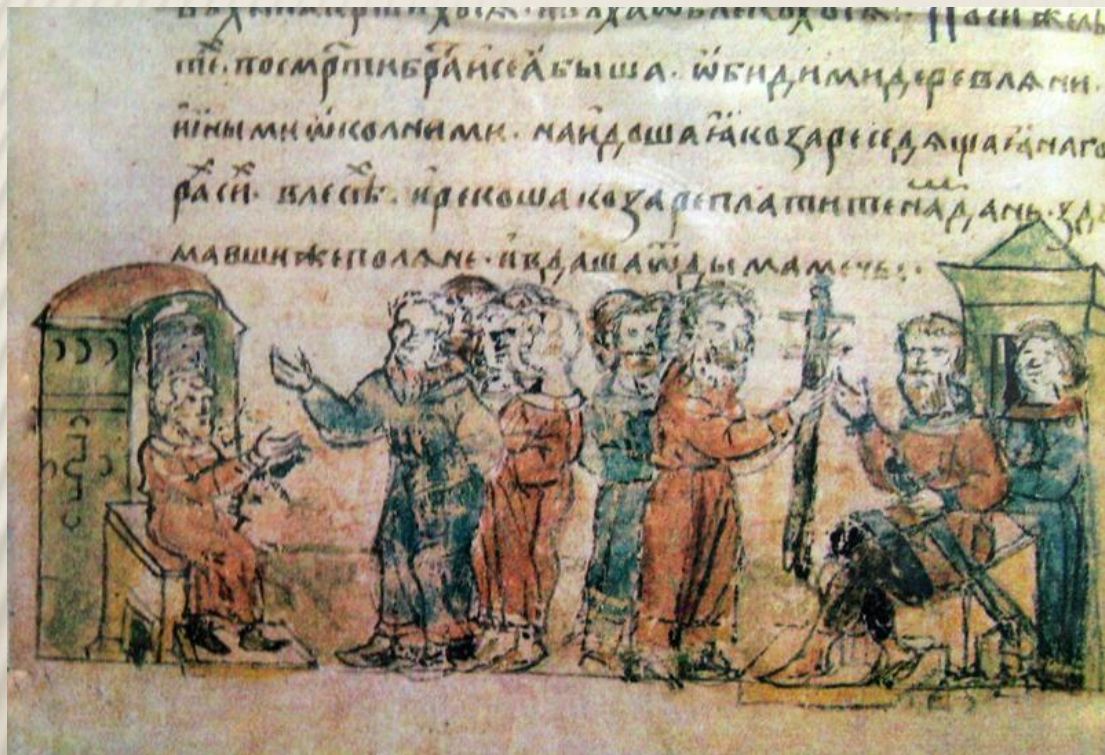 По сиⷯ же лѣ
теⷯ. по смр҃ти браⷮи сеа быша. ѡбидими деревлѧни.
иными ѡколними. наидоша ꙗ козаре седѧщаꙗ на го
раⷯ сиⷯ. в лесѣⷯ. и рекоша козаре платите наⷨ дань. здꙋ
мавши же полѧне. и вдаша ѿ дыма мечь:.